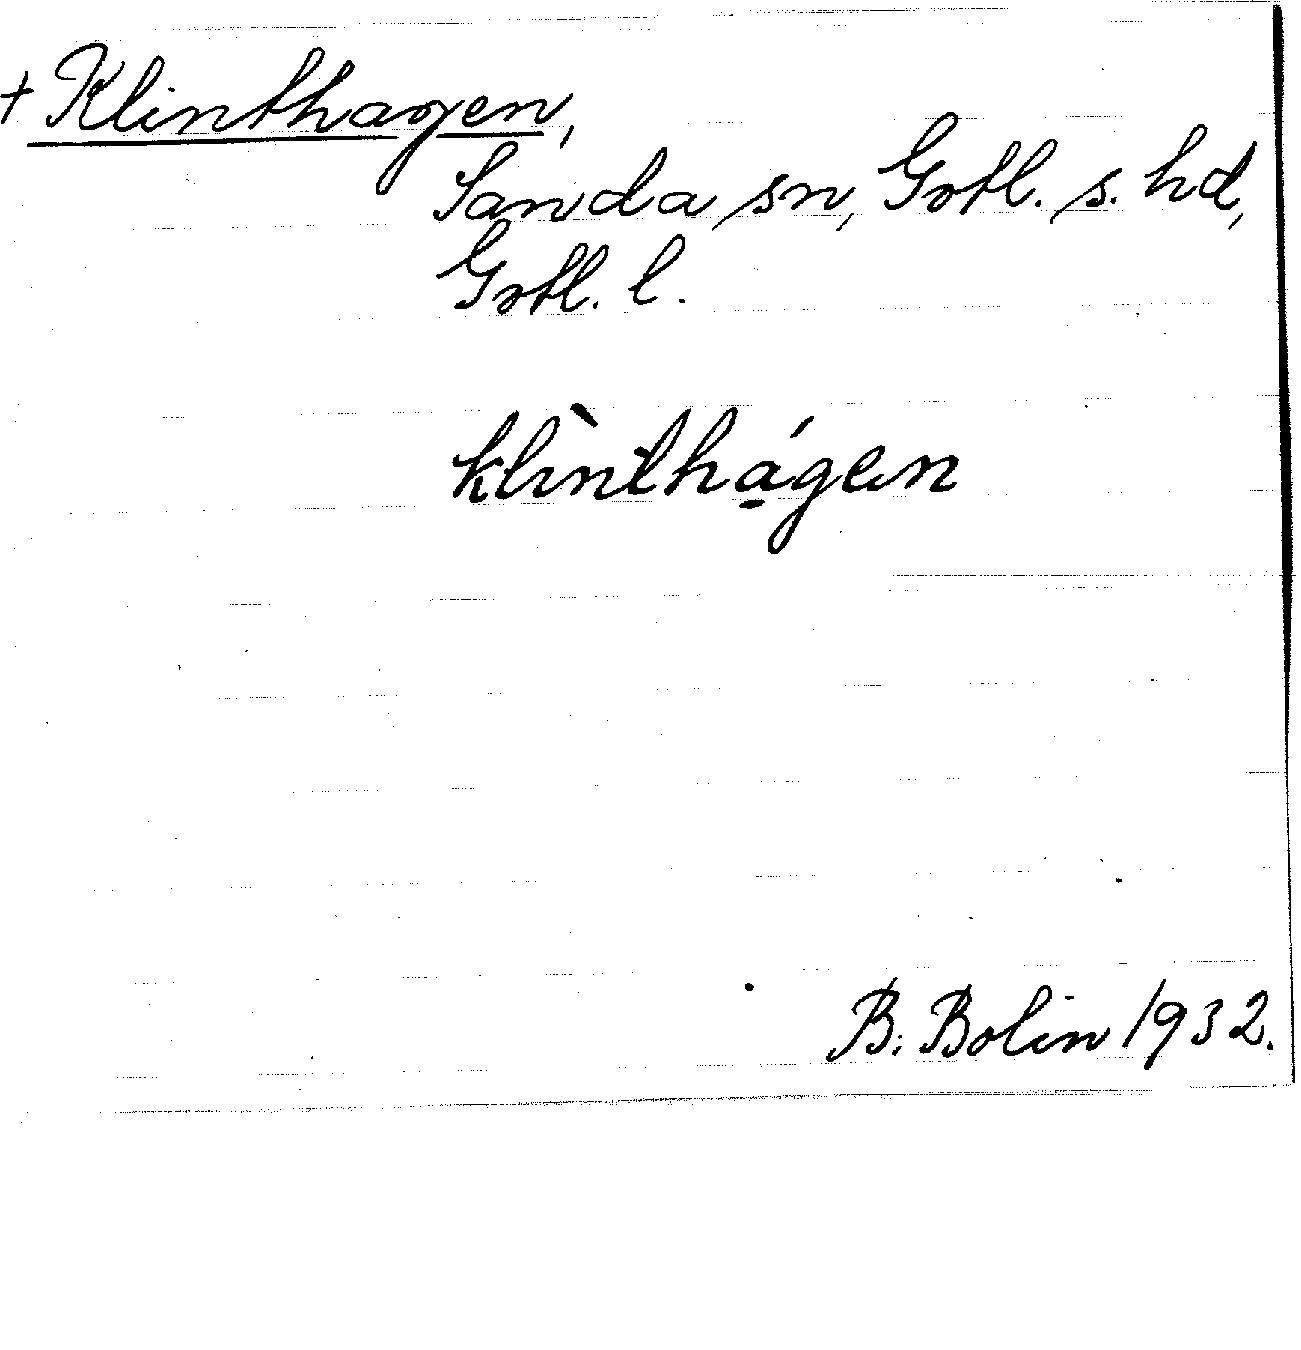 + Klinthagen,
Sanda sn, Gotl. s. hd,
Gotl. l.
klìnthá̱gen
B. Bolin 1932.